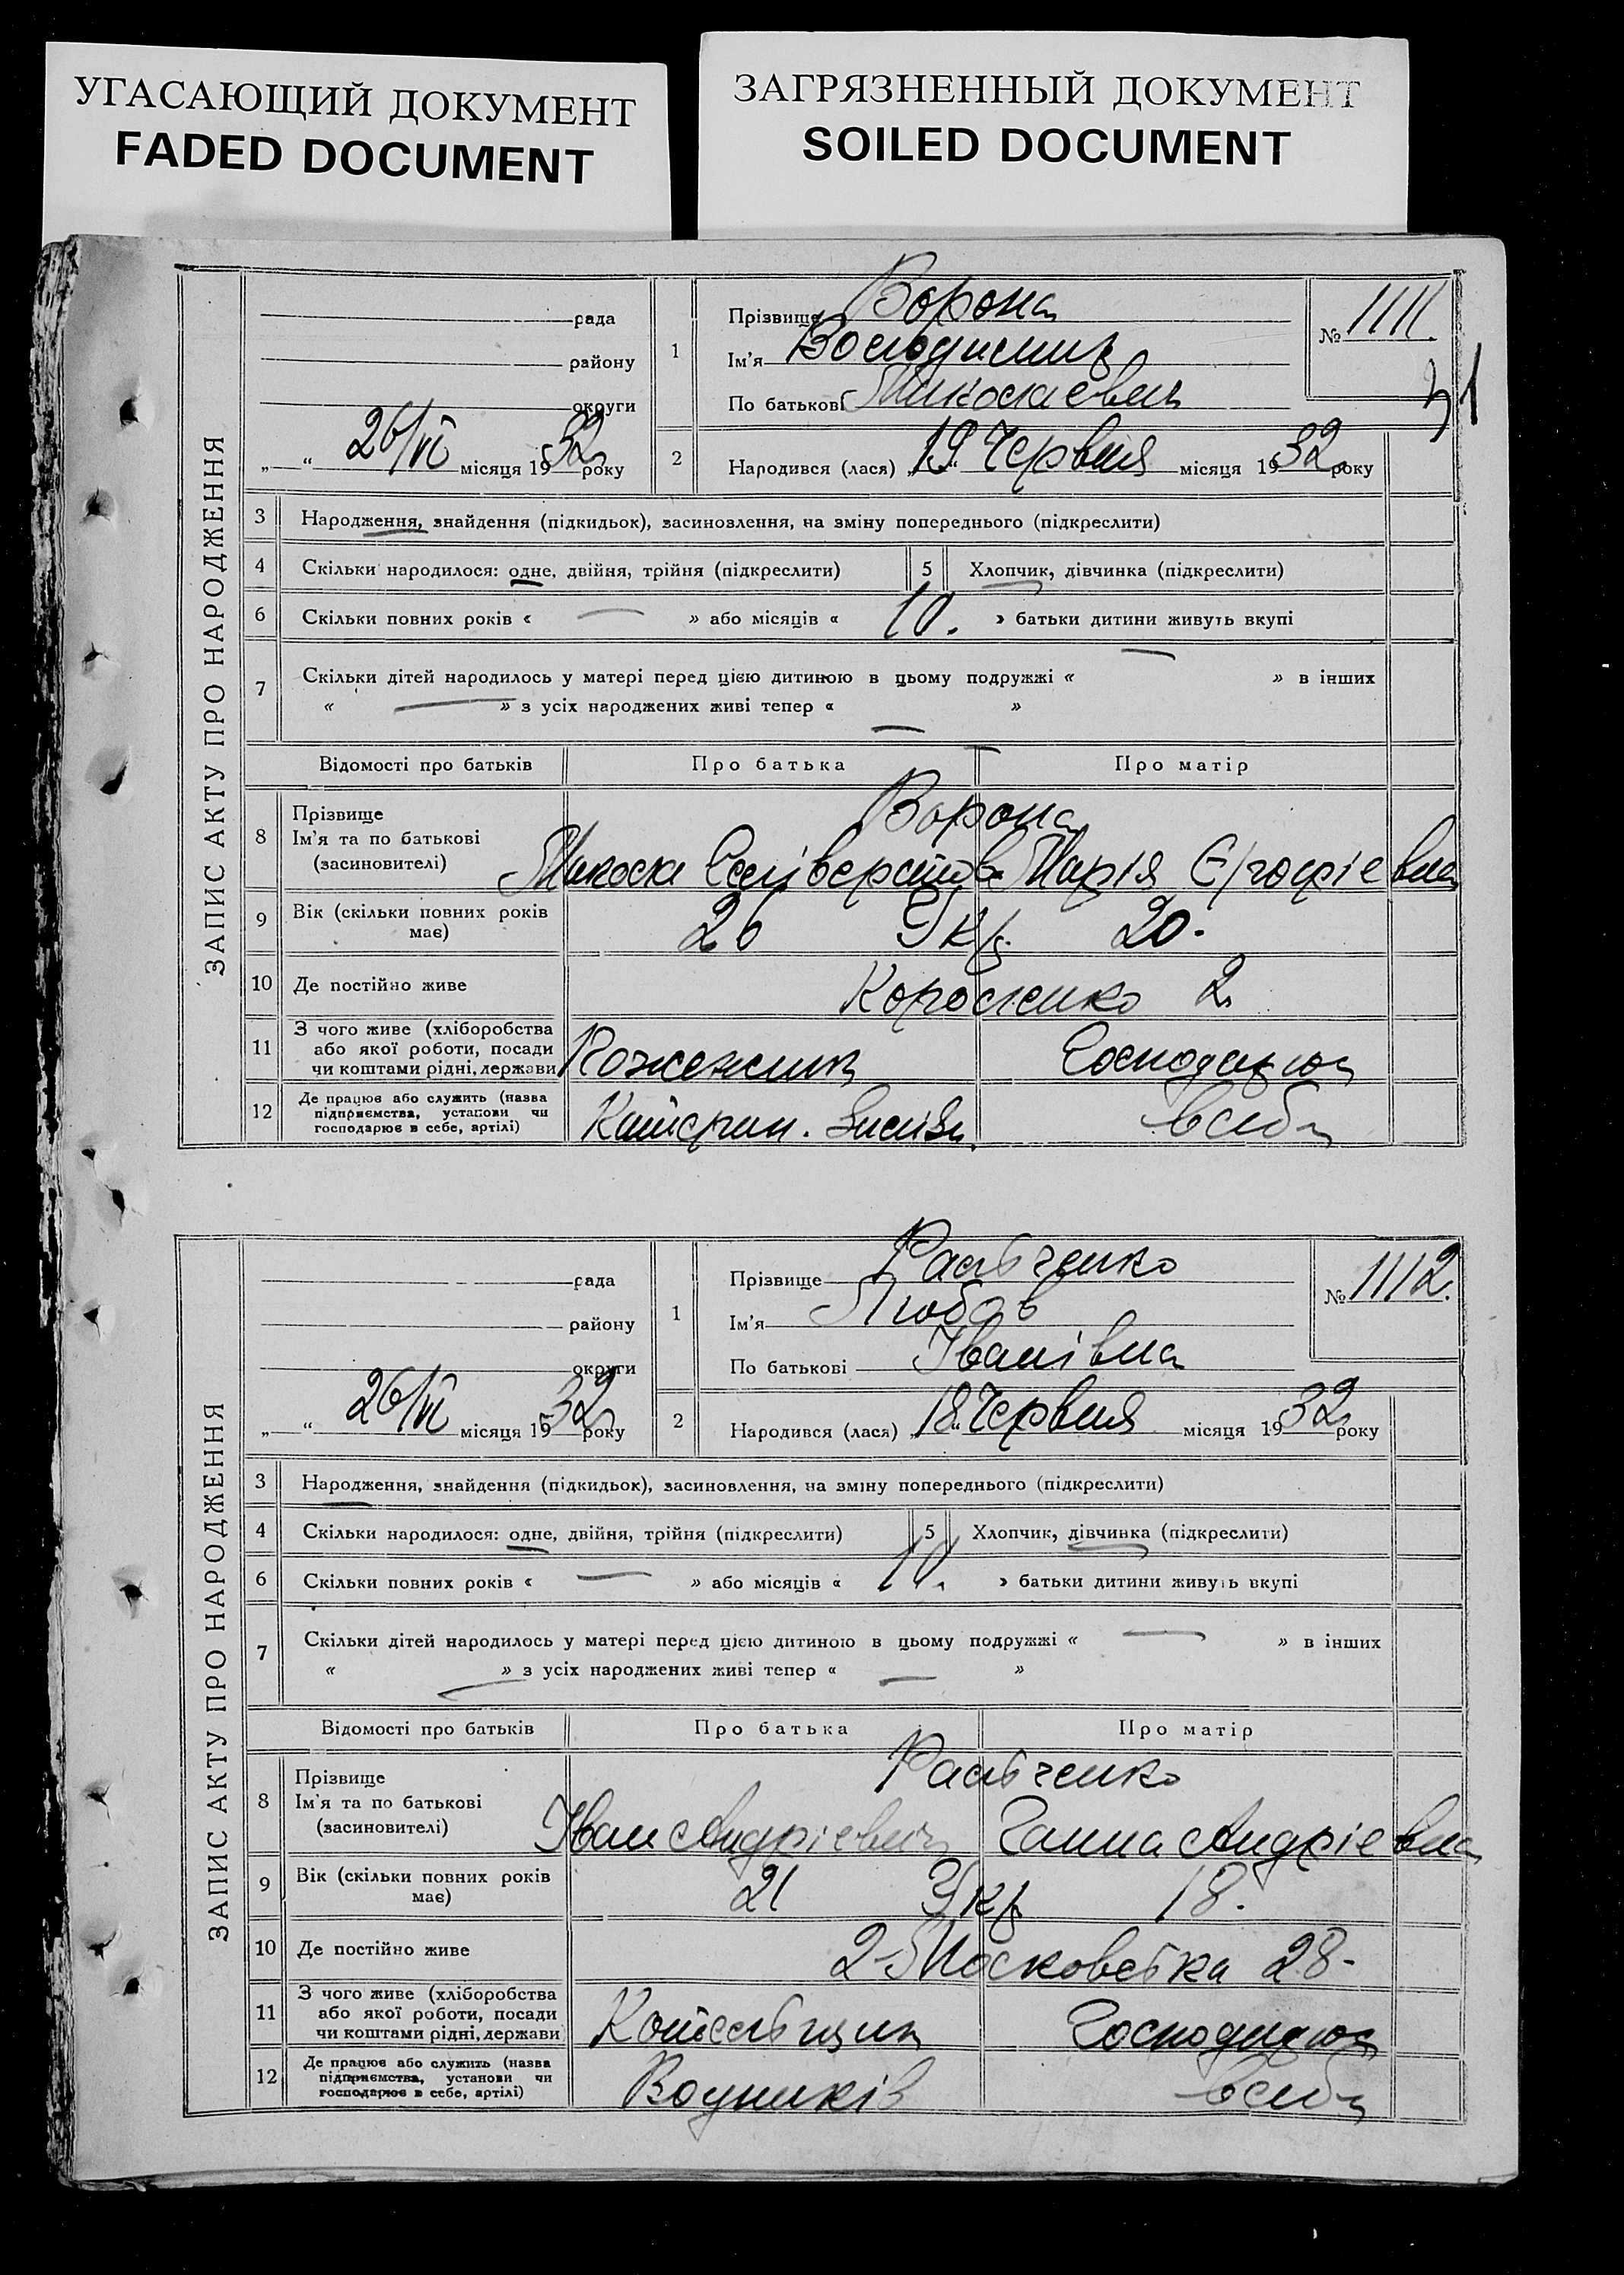 УГАСАЮЩИЙ ДОКУМЕНТ
FADED DOCUMENT
ЗАГРЯЗНЕННЫЙ ДОКУМЕНТ
SOILED DOCUMENT
ЗАПИС АКТУ ПРО НАРОДЖЕННЯ
рада
району
округи
„ “ 26/VI місяця 1932 року
1
Прізвище Ворона
Ім'я Володимир
По батькові Миколаевич
№ 1111.
31
2
Народився (лася) „19“ Червня місяця 1932 року
3 Народження, знайдення (підкидьок), засиновлення, на зміну попереднього (підкреслити)
4 Скільки народилося: одне, двійня, трійня (підкреслити)
5 Хлопчик, дівчинка (підкреслити)
6 Скільки повних років « — » або місяців « 10. » батьки дитини живуть вкупі
7 Скільки дітей народилось у матері перед цією дитиною в цьому подружжі « — » в інших
« — » з усіх народжених живі тепер « — »
Відомості про батьків Про батька Про матір
8 Прізвище
Ім'я та по батькові
(засиновителі)
Ворона
Микола Марія
9 Вік (скільки повних років
має)
26 Укр. 20.
10 Де постійно живе Короленко 2
11 З чого живе (хліборобства
або якої роботи, посади
чи коштами рідні, держави
Кожежник
12 Де працює або служить (назва
підприємства, установи чи
господарює в себе, артілі)
ЗАПИС АКТУ ПРО НАРОДЖЕННЯ
рада
району
округи
„ “ 26/VI місяця 1932 року
1
Прізвище Ральченко
Ім'я Любов
По батькові Іванівна
№ 1112.
2
Народився (лася) „18“ Червня місяця 1932 року
3 Народження, знайдення (підкидьок), засиновлення, на зміну попереднього (підкреслити)
4 Скільки народилося: одне, двійня, трійня (підкреслити)
5 Хлопчик, дівчинка (підкреслити)
6 Скільки повних років « — » або місяців « 10. » батьки дитини живуть вкупі
7 Скільки дітей народилось у матері перед цією дитиною в цьому подружжі « — » в інших
« — » з усіх народжених живі тепер « — »
Відомості про батьків Про батька Про матір
8 Прізвище
Ім'я та по батькові
(засиновителі)
Ральченко
Іван Андрієвич Ганна Андрієвна
9 Вік (скільки повних років
має)
21 Укр. 18.
10 Де постійно живе 2-Московська 28-
11 З чого живе (хліборобства
або якої роботи, посади
чи коштами рідні, держави
Котельщик
12 Де працює або служить (назва
підприємства, установи чи
господарює в себе, артілі)
Водників